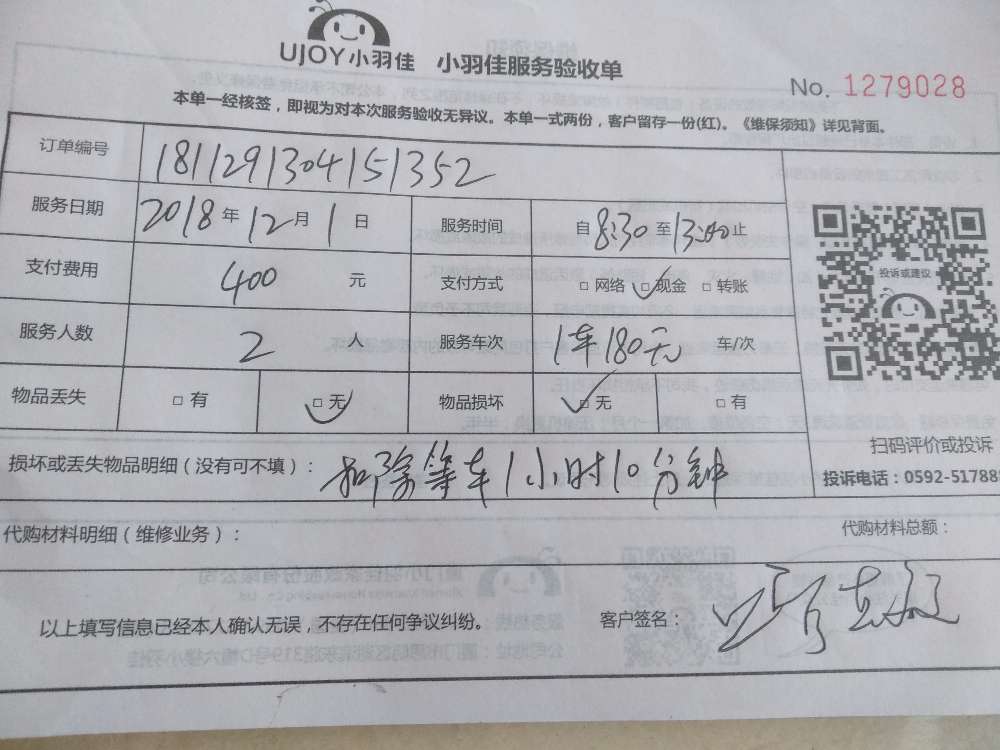 UJOY小羽佳 小羽佳服务验收单
No. 1279028
本单一经核签，即视为对本次服务验收无异议。本单一式两份，客户留存一份(红)。《维保须知》详见背面。
订单编号 1811291304151352
服务日期 2018年12月1日 服务时间 自8:30至13:00止
支付费用 400 元 支付方式 □网络 □现金 □转账
服务人数 2 人 服务车次 1车180元 车/次
物品丢失 □有 □无 物品损坏 □无 □有
投诉或建议
扫码评价或投诉
投诉电话：0592-51788
损坏或丢失物品明细（没有可不填）：扣除等车1小时10分钟
代购材料明细（维修业务）： 代购材料总额：
以上填写信息已经本人确认无误，不存在任何争议纠纷。 客户签名：